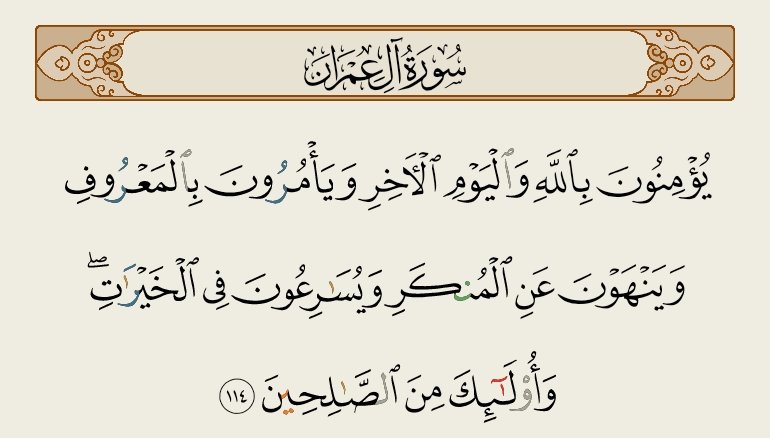 سُورَةُ آلِ عِمْرَانَ
يُؤْمِنُونَ بِٱللَّهِ وَٱلْيَوْمِ ٱلْأَخِرِ وَيَأْمُرُونَ بِٱلْمَعْرُوفِ
وَيَنْهَوْنَ عَنِ ٱلْمُنكَرِ وَيُسَـٰرِعُونَ فِى ٱلْخَيْرَٰتِۖ
وَأُو۟لَـٰٓئِكَ مِنَ ٱلصَّـٰلِحِينَ ١١٤